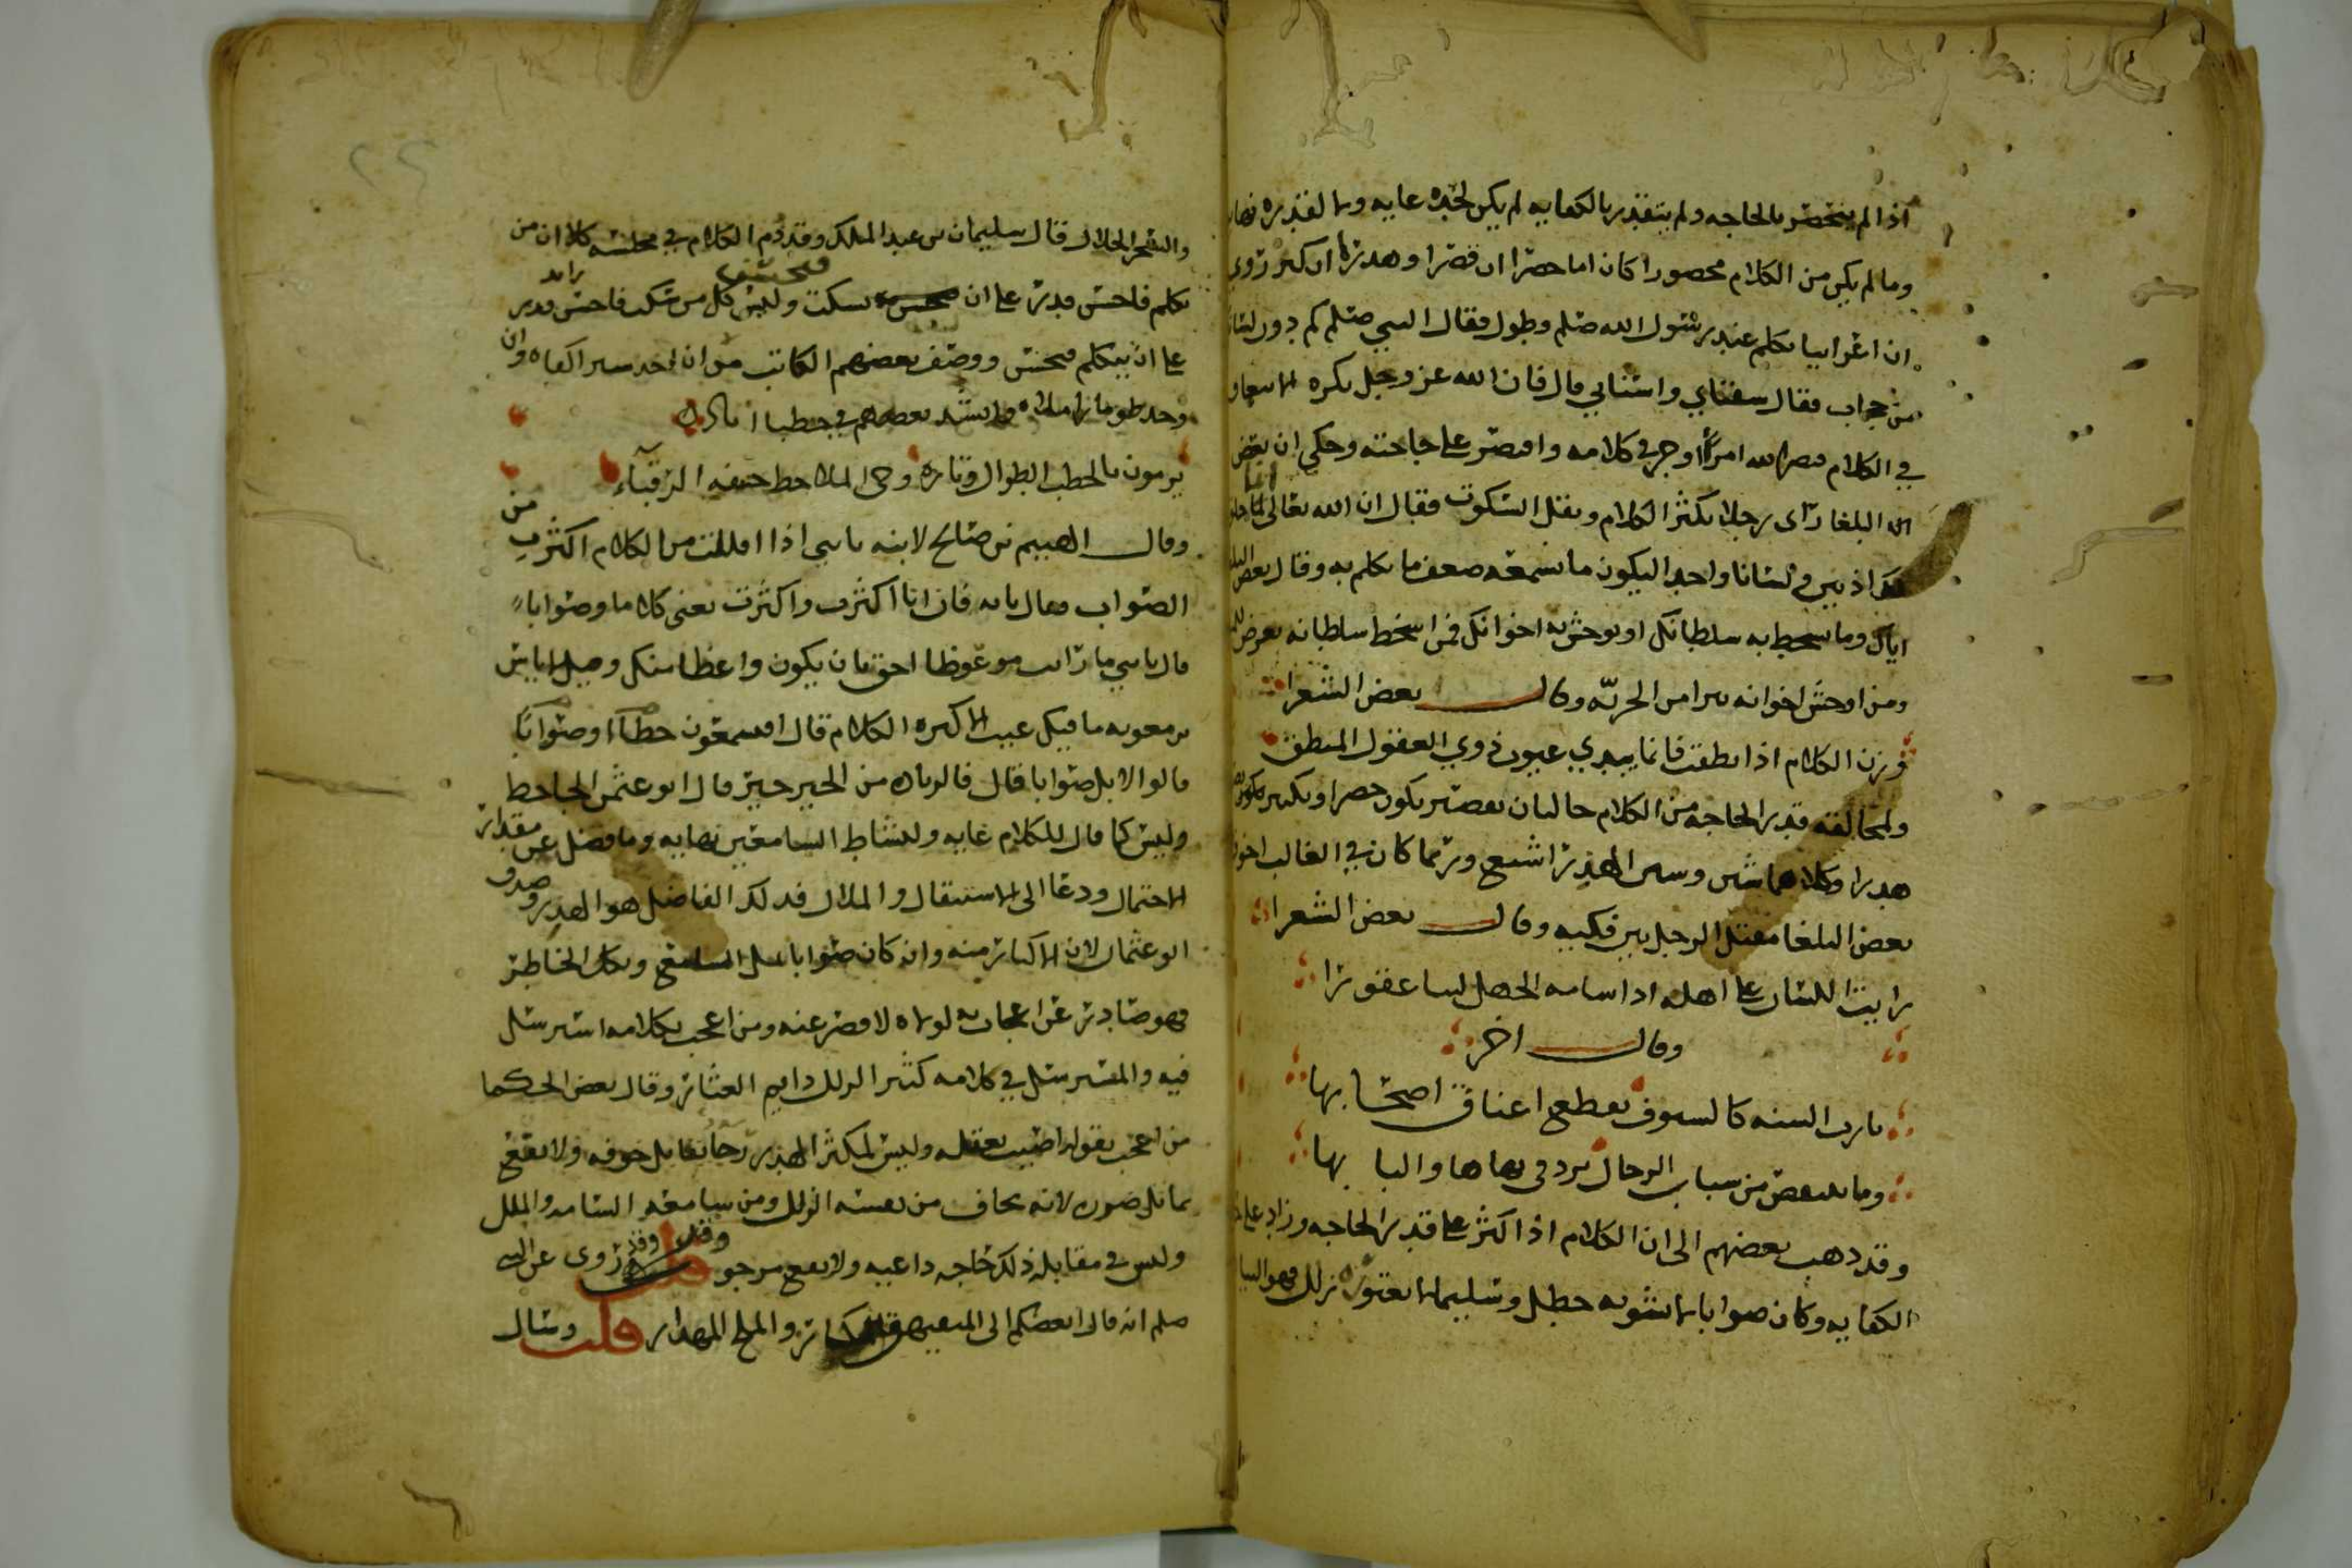 اذا لم ينحصر بالحاجه ولم يتقدر بالكفايه لم يكن لحده غايه ولا لقدره نهايه
وما لم يكن من الكلام محصورا كان اما حصرا ان قصر او هدرا ان كثر روي
ان اعرابيا تكلم عند رسول الله صلم وطول فقال النبي صلم كم دون لسانك
من حجاب فقال شفتاي واسناني قال فان الله عز وجل يكره الانبعاق
في الكلام فنضر الله امرأ اوجز في كلامه واقتصر على حاجته وحكي ان بعض
البلغا راى رجلا يكثر الكلام ويقل السكوت فقال ان الله تعالى انما خلق
لك اذنين ولسانا واحدا ليكون ما تسمعه ضعف ما تكلم به وقال بعض البلغا
اياك وما يسخط به سلطانك او توحش به اخوانك فمن اسخط سلطانه تعرض للمنيه
ومن اوحش اخوانه تبرا من الحريّه وقال بعض الشعرا
وزن الكلام اذا نطقت فانما يبدي عيوب ذوي العقول المنطق
ولمخالفه قدر الحاجه من الكلام حالتان تقصير يكون حصرا وتكثير يكون
هدرا وكلاهما شين وشين الهذر اشنع وربما كان في الغالب اخوف
بعض البلغا مقتل الرجل بين فكيه وقال بعض الشعرا
رايت اللسان على اهله اذا ساسه الجهل ليثا عقورا
وقال اخر
يا رب السنه كالسيوف تقطع اعناق اصحابها
وما ينقص من سباب الرجال يرد في نهاها والبا بها
وقد ذهب بعضهم الى ان الكلام اذا كثر على قدر الحاجه وزاد على حد
الكفايه وكان صوابا لا يشوبه خطل وسليما لا يعتوره زلل فهو البيان
والسحر الحلال قال سليمان بن عبد الملك وقد ذم الكلام في مجلسه كلا ان من
تكلم فاحسن قدر على ان يسكت فيحسن وليس كل من سكت فاحسن قدر
على ان يتكلم فيحسن ووصف بعضهم الكاتب من ان اخذ شبرا كفاه وان
وجد طومارا املاه وانشد بعضهم في خطبا اياد
يرمون بالخطب الطوال وتاره وحي الملاحظ خيفه الرقباء
وقال الهيثم بن صالح لابنه يا بني اذا اقللت من الكلام اكثرت من
الصواب فقال يا ابه فان انا اكثرت واكثرت يعني كلاما وصوابا
قال يا بني ما رايت موعوظا احق بان يكون واعظا منك وقيل لاياس
بن معويه ما فيك عيب الا كثره الكلام قال افتسمعون خطأ او صوابا
قالوا لا بل صوابا قال فالزياده من الخير خير قال ابو عثمن الجاحظ
وليس كما قال للكلام غايه ولنشاط السامعين نهايه وما فضل عن مقدار
الاحتمال ودعا الى الاستثقال والملال فذلك الفاضل هو الهذر وصدق
ابو عثمان لان الاكثار منه وان كان صوابا يمل السامع ويكل الخاطر
فهو صادر عن اعجاب به لولاه لاقصر عنه ومن اعجب بكلامه استرسل
فيه والمسترسل في كلامه كثير الزلل دايم العثار وقال بعض الحكما
من اعجب بقوله اصيب بعقله وليس لمكثر الهذر رجا يقابل خوفه ولا نفع
يماثل ضره لانه يخاف من نفسه الزلل ومن سامعه السامه والملل
وليس في مقابله ذلك حاجه داعيه ولا نفع مرجو وقد روى عن النبي
صلم انه قال ابغضكم الى المتفيهق المكثار والملح المهذار قلت وسال